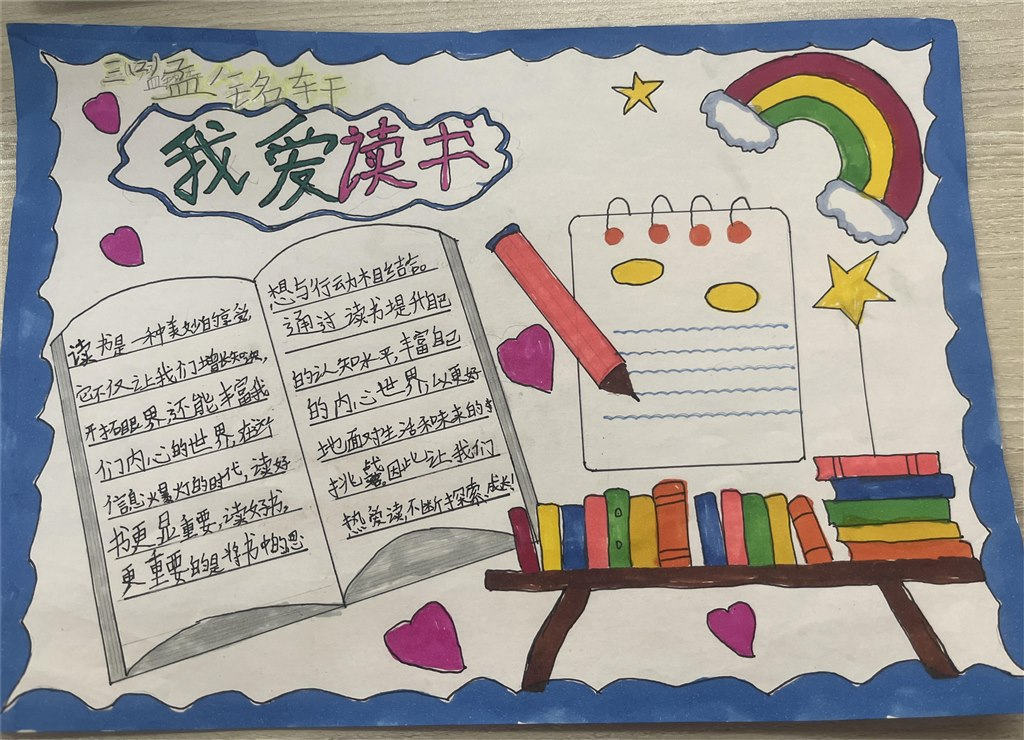 我爱读书
读书是一种美妙的享受,
它不仅让我们增长知识,
开拓眼界,还能丰富我
们内心的世界,在这
信息火暴火丁的时代,读好
书更显重要,读好书,
更重要的是将书中的思
想与行动相结合。
通过读书提升自己
的认知水平,丰富自己
的内心世界,以更好
地面对生活和味来的
挑战因此让我们
热爱读,不断探索,成长!